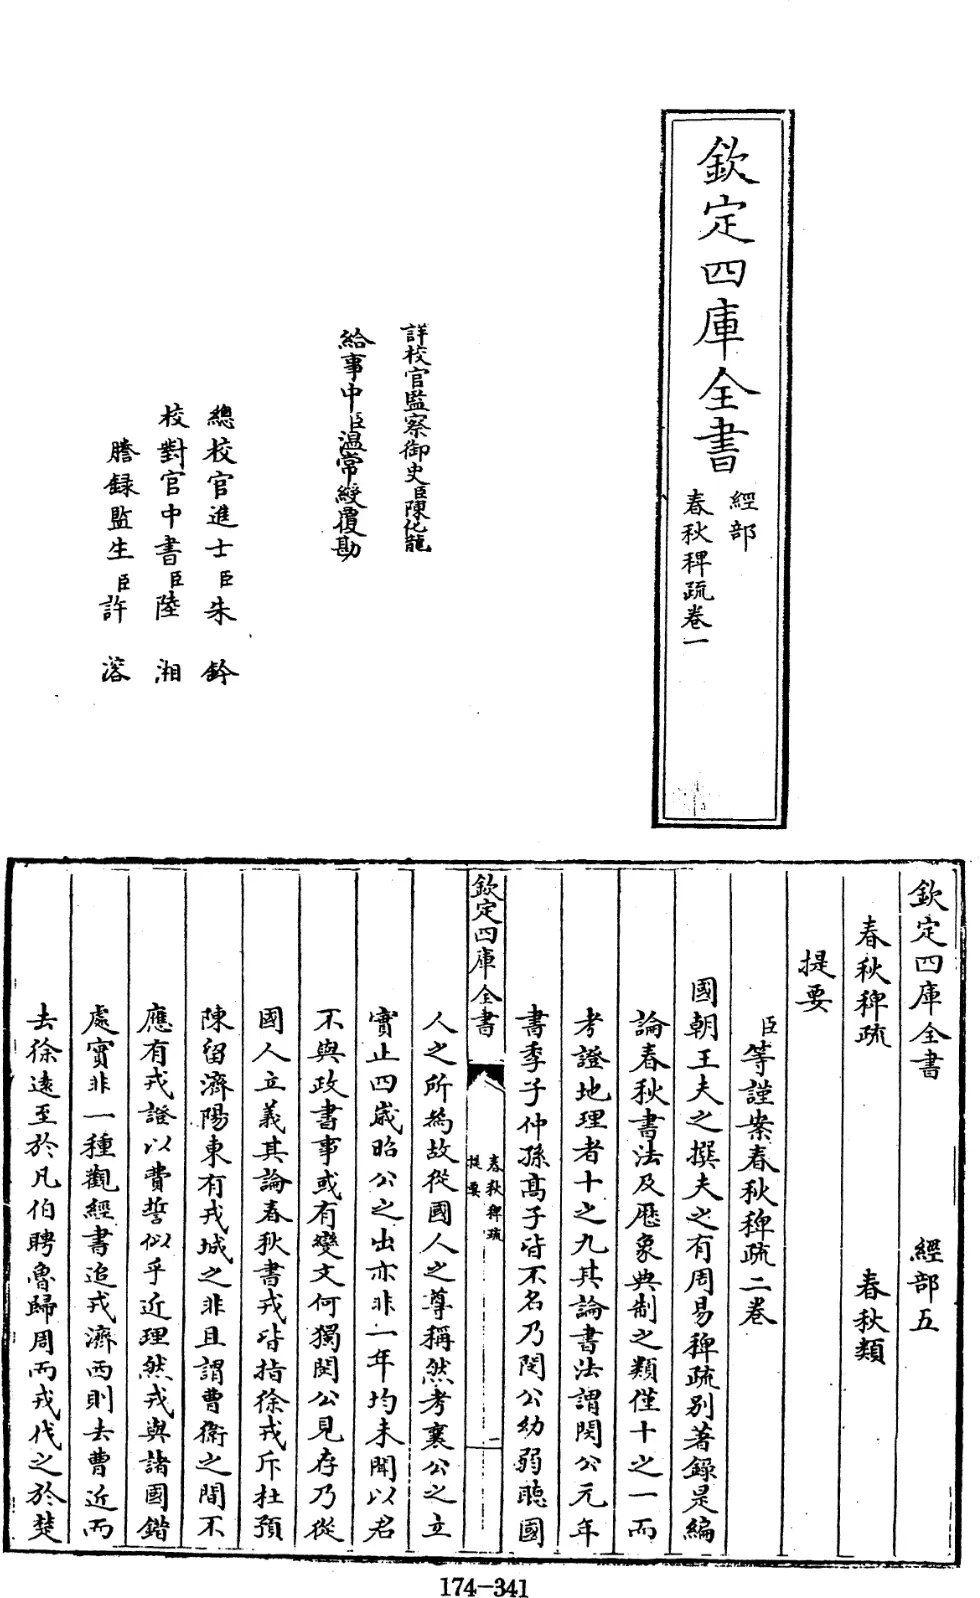 欽定四庫全書
經部
春秋稗疏卷一
詳校官監察御史臣陳化龍
給事中臣温常綬覆勘
總校官進士臣朱鈐
校對官中書臣陸湘
謄録監生臣許溶
欽定四庫全書 經部五
春秋稗疏 春秋類
提要
臣等謹案春秋稗疏二卷
國朝王夫之撰夫之有周易稗疏别著録是編
論春秋書法及厯象典制之類僅十之一而
考證地理者十之九其論書法謂閔公元年
書季子仲孫髙子皆不名乃閔公幼弱聴國
欽定四庫全書
春秋稗疏
提要
一
人之所為故從國人之尊稱然考襄公之立
實止四歳昭公之出亦非一年均未聞以君
不與政書事或有變文何獨閔公見存乃從
國人立義其論春秋書戎皆指徐戎斥杜預
陳留濟陽東有戎城之非且謂曹衛之間不
應有戎證以費誓似乎近理然戎與諸國錯
處實非一種觀經書追戎濟西則去曹近而
去徐逺至於凡伯聘魯歸周而戎伐之於楚
174-341